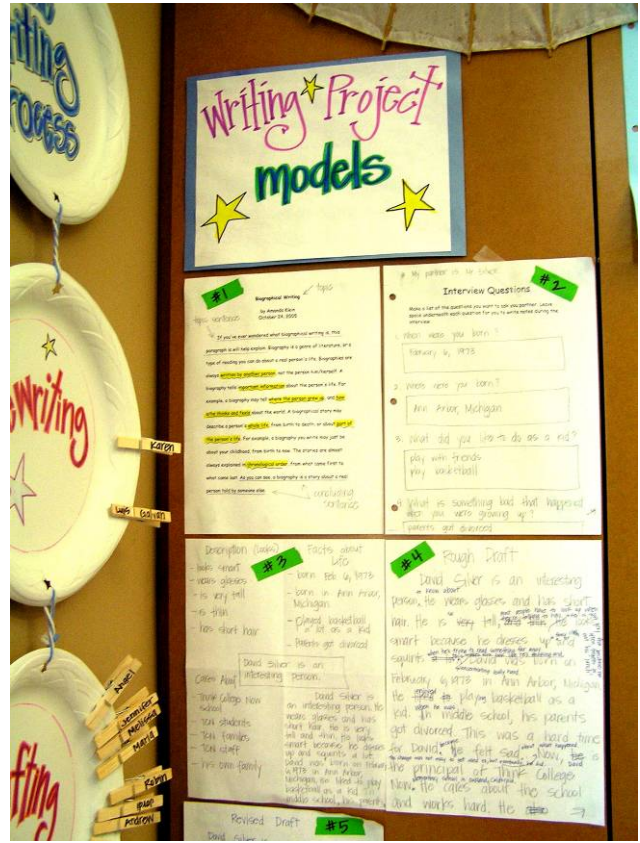 Writing
Process
Writing
Karen
Luis
Angel
Jennifer
Melissa
Maria
Robin
Andrew
Writing Project
models
#1
topic
Biographical Writing
by Amanda Klein
October 24, 2005
topic sentence
If you've ever wondered what biographical writing is, this
paragraph is will help explain. Biography is a genre of literature, or a
type of reading you can do about a real person's life. Biographies are
always written by another person, not the person him/herself. A
biography tells important information about the person's life. For
example, a biography may tell where the person grew up, and how
s/he thinks and feels about the world. A biographical story may
describe a person's whole life, from birth to death, or about part of
the person's life. For example, a biography you write may just be
about your childhood, from birth to now. The stories are almost
always explained in chronological order, from what came first to
what came last. As you can see, a biography is a story about a real
person told by someone else.
concluding
sentence
#2
My partner is
Interview Questions
Make a list of the questions you want to ask you partner. Leave
space underneath each question for you to write notes during the
interview.
1. When were you born?
February 6, 1973
2. Where were you born?
Ann Arbor, Michigan
3. What did you like to do as a kid?
play with friends
play basketball
4. What is something bad that happened
when you were growing up?
parents got divorced
#3
Description (looks)
- looks smart
- wears glasses
- is very tall
- is thin
- has short hair
Facts about
Life
- born Feb. 6, 1973
- born in Ann Arbor,
Michigan
- played basketball
a lot as a kid
- Parents got divorced
David Silver is an
interesting person.
Cares About
- Think College Now
school
- TCN students
- TCN families
- TCN staff
- his own family
David Silver is
an interesting person. He
wears glasses and has
short hair. He is very
tall and thin. He looks
smart because he dresses
up and squints a lot.
David was born on February
6, 1973 in Ann Arbor,
Michigan. He liked to play
basketball as a kid. In
middle school, his parents
#4
Rough Draft
David Silver is an interesting
person. He wears glasses and has short
hair. He is very tall
smart because he dresses up and
squints
David was born on
February 6, 1973 in Ann Arbor, Michigan.
He playing basketball as a
kid. In middle school, his parents
got divorced. This was a hard time
for David. He felt sad. Now, he is
the principal of Think College
Now. He cares about the school
and works hard. He
Revised Draft
#5
David Silver is